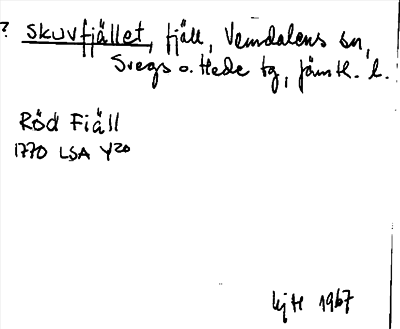 ? Skuvfjället, fjäll, Vemdalens sn,
Svegs o. Hede tg, Jämtl. l.
Röd Fiäll
1770 LSA Y20
1967